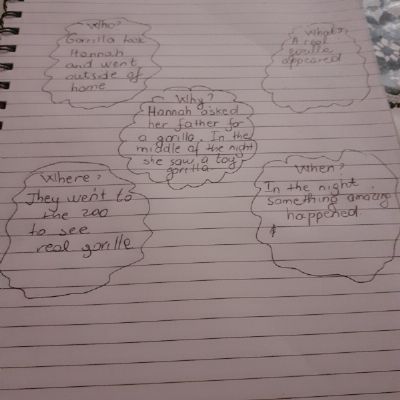 Who?
Gorrilla took
Hannah
and went
outside of
home
What?
A real
gorilla
appeared
Why?
Hannah asked
her father for
a gorilla. In the
middle of the night
she saw a toy
gorilla
Where?
They went to
the zoo
to see
real gorille
When?
In the night
something amazing
happened